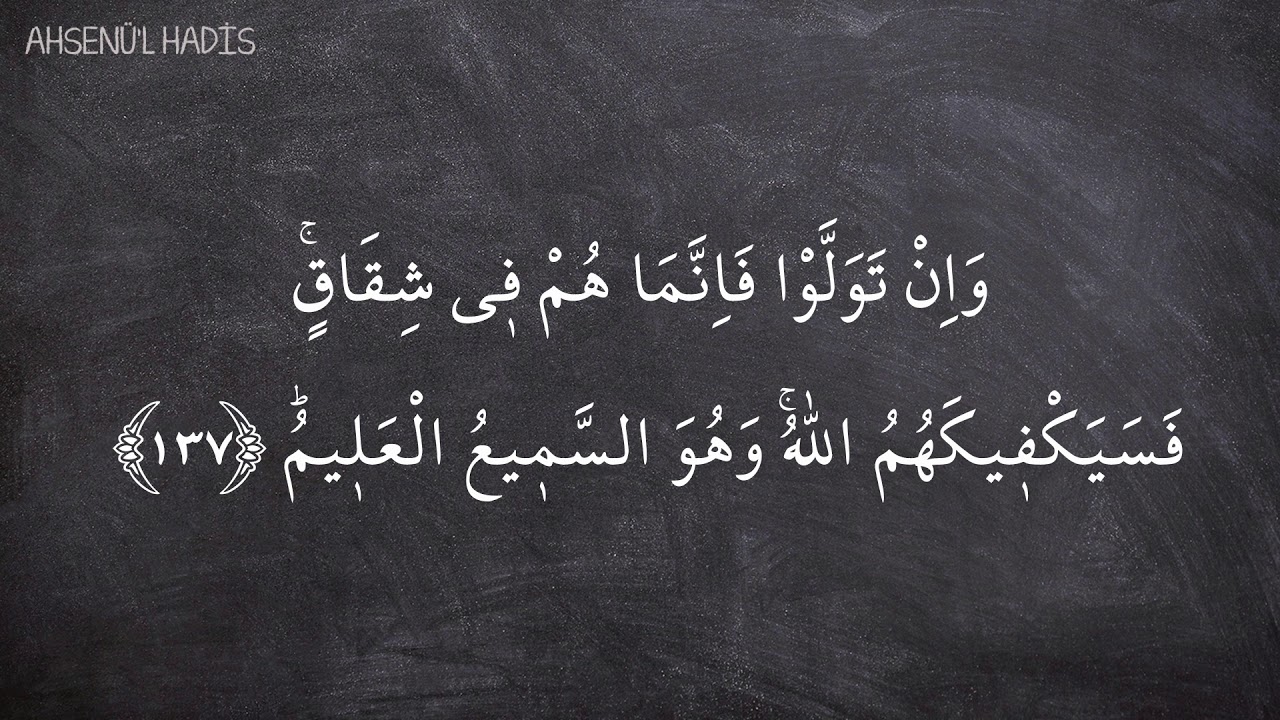 AHSENÜ'L HADİS
وَاِنْ تَوَلَّوْا فَاِنَّمَا هُمْ ف۪ى شِقَاقٍۚ
فَسَيَكْف۪يكَهُمُ اللّٰهُۚ وَهُوَ السَّم۪يعُ الْعَل۪يمُۜ ﴿١٣٧﴾